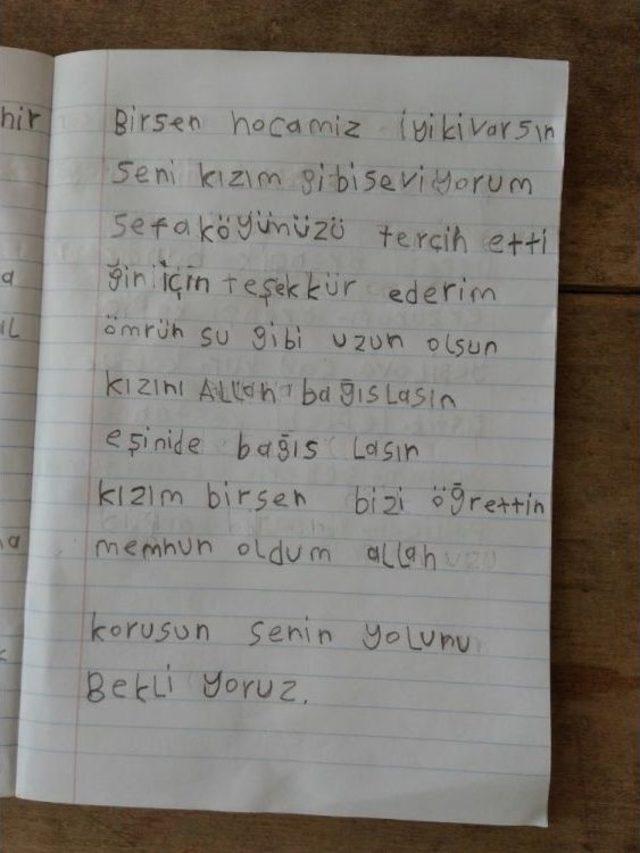 hir
Birsen hocamiz iyikivarsın
seni kızım gibiseviyorum
sefaköyünüzü tercih etti
ğin için teşekkür ederim
ömrün su gibi uzun olsun
kızını ALLah bağısLasın
eşinide bağıs Lasın
kızım birsen bizi öğrettin
memnun oldum allah
korusun senin yolunu
BekLi yoruz.